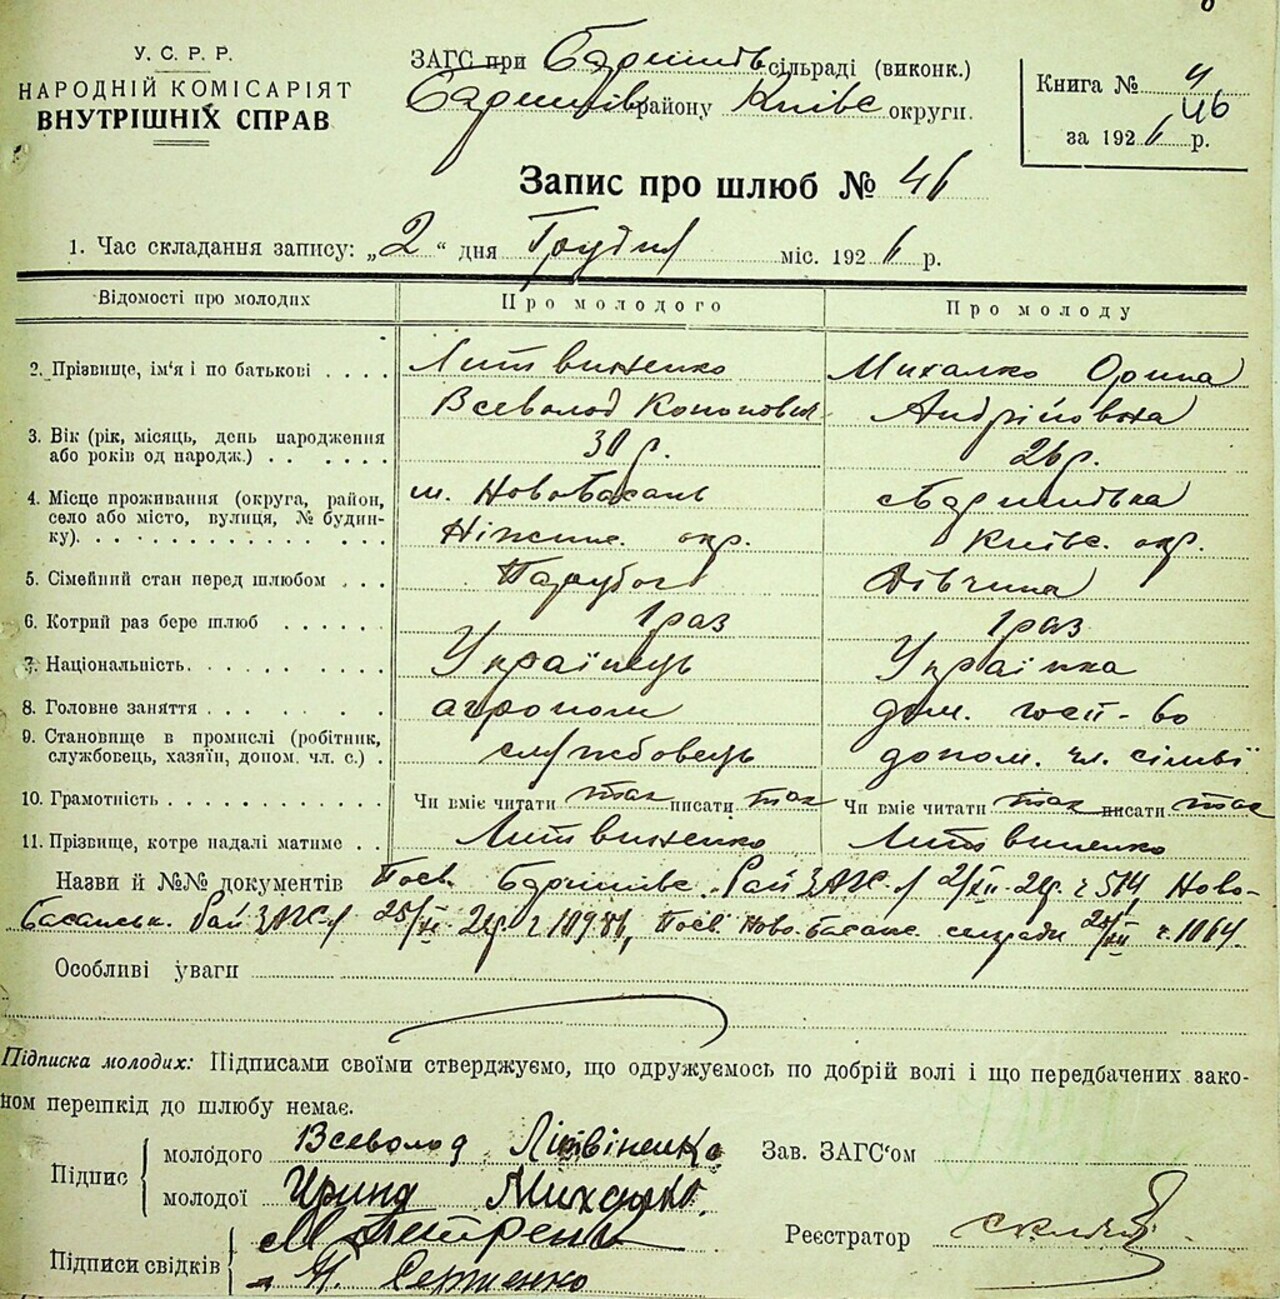 У. С. Р. Р.
НАРОДНІЙ КОМІСАРІЯТ
ВНУТРІШНІХ СПРАВ
ЗАГС при Баришів сільраді (виконк.)
Баришів району Київс округи.
Книга № 4
46
за 1926 р.
Запис про шлюб № 46
1. Час складання запису: „2“ дня Грудня міс. 1926 р.
Відомості про молодих Про молодого Про молоду
2. Прізвище, ім'я і по батькові . . . . Литвиненко Михалко Орина
Всеволод Кононович Андріївна
3. Вік (рік, місяць, день народження
або років од народж.) . . . . . . 30 р. 26 р.
4. Місце проживання (округа, район,
село або місто, вулиця, № будин-
ку). . . . . . . . . . . . . .
м. НовоБасань Баришівка
Ніжинс. окр. Київс. окр.
5. Сімейний стан перед шлюбом . . . Парубок Дівчина
6. Котрий раз бере шлюб . . . . . . 1 раз 1 раз
7. Національність. . . . . . . . . Українець Українка
8. Головне заняття . . . . . . . агроном дом. госп-во
9. Становище в промислі (робітник,
службовець, хазяїн, допом. чл. с.) . службовець допом. чл. сімьї
10. Грамотність . . . . . . . . . . . Чи вміє читати так писати так Чи вміє читати так писати так
11. Прізвище, котре надалі матиме . . Литвиненко Литвиненко
Назви й №№ документів Посв. Баришівс. РайЗАГС 2/XII 26р. ч 514, Ново-
Басанськ. РайЗАГС 25/XI 26р. ч Посв. Ново-Басанс. сільради ч. 1064.
Особливі уваги
Підписка молодих: Підписами своїми стверджуємо, що одружуємось по добрій волі і що передбачених зако-
ном перешкід до шлюбу немає.
Підпис молодого Всеволод Літвіненко Зав. ЗАГС'ом
молодої Ирина Михалко.
Підписи свідків М Петренко Реєстратор
Сергиенко